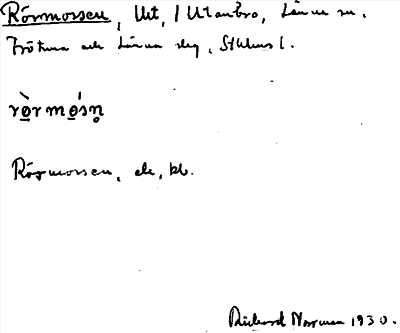 Rörmossen, Ut, / Utanbro, Länna sn.
Frötuna och Länna slg, Sthlms l.
rö̀rmósn̥
Rörmossen, ek, kl.
Richard Norrman 1930.